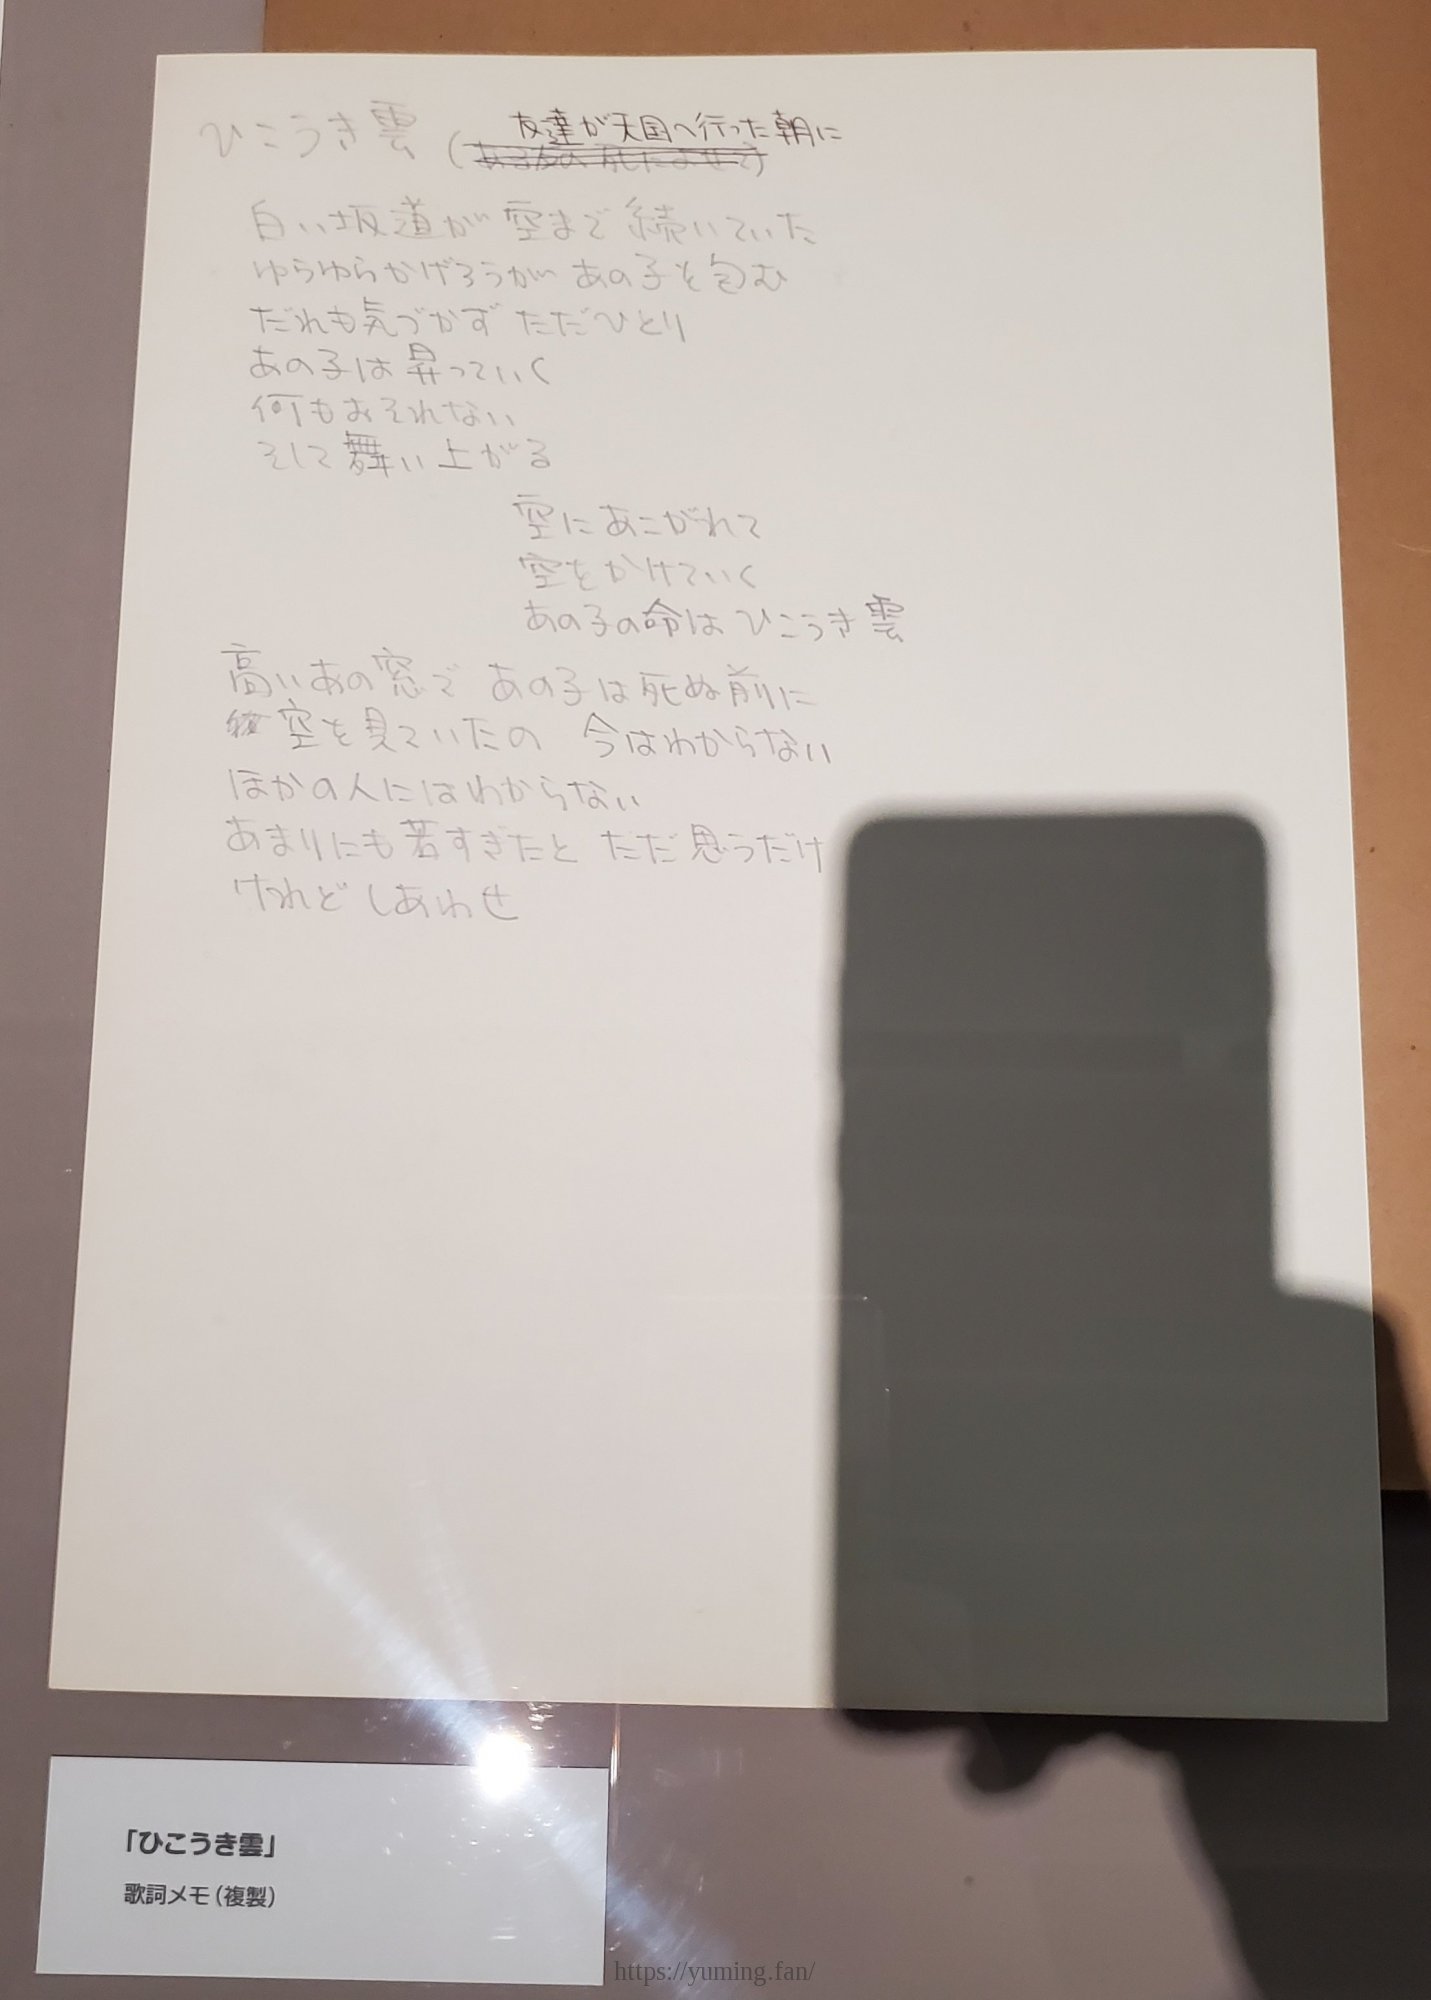 ひこうき雲
友達が天国へ行った朝に
白い坂道が空まで続いていた
ゆらゆらかげろうが あの子を包む
だれも気づかず ただひとり
あの子は昇っていく
何もおそれない
そして舞い上がる
空にあこがれて
空をかけていく
あの子の命はひこうき雲
高いあの窓で あの子は死ぬ前に
空を見ていたの 今はわからない
ほかの人にはわからない
あまりにも若すぎたと ただ思うだけ
けれどしあわせ
「ひこうき雲」
歌詞メモ(複製)
https://yuming.fan/